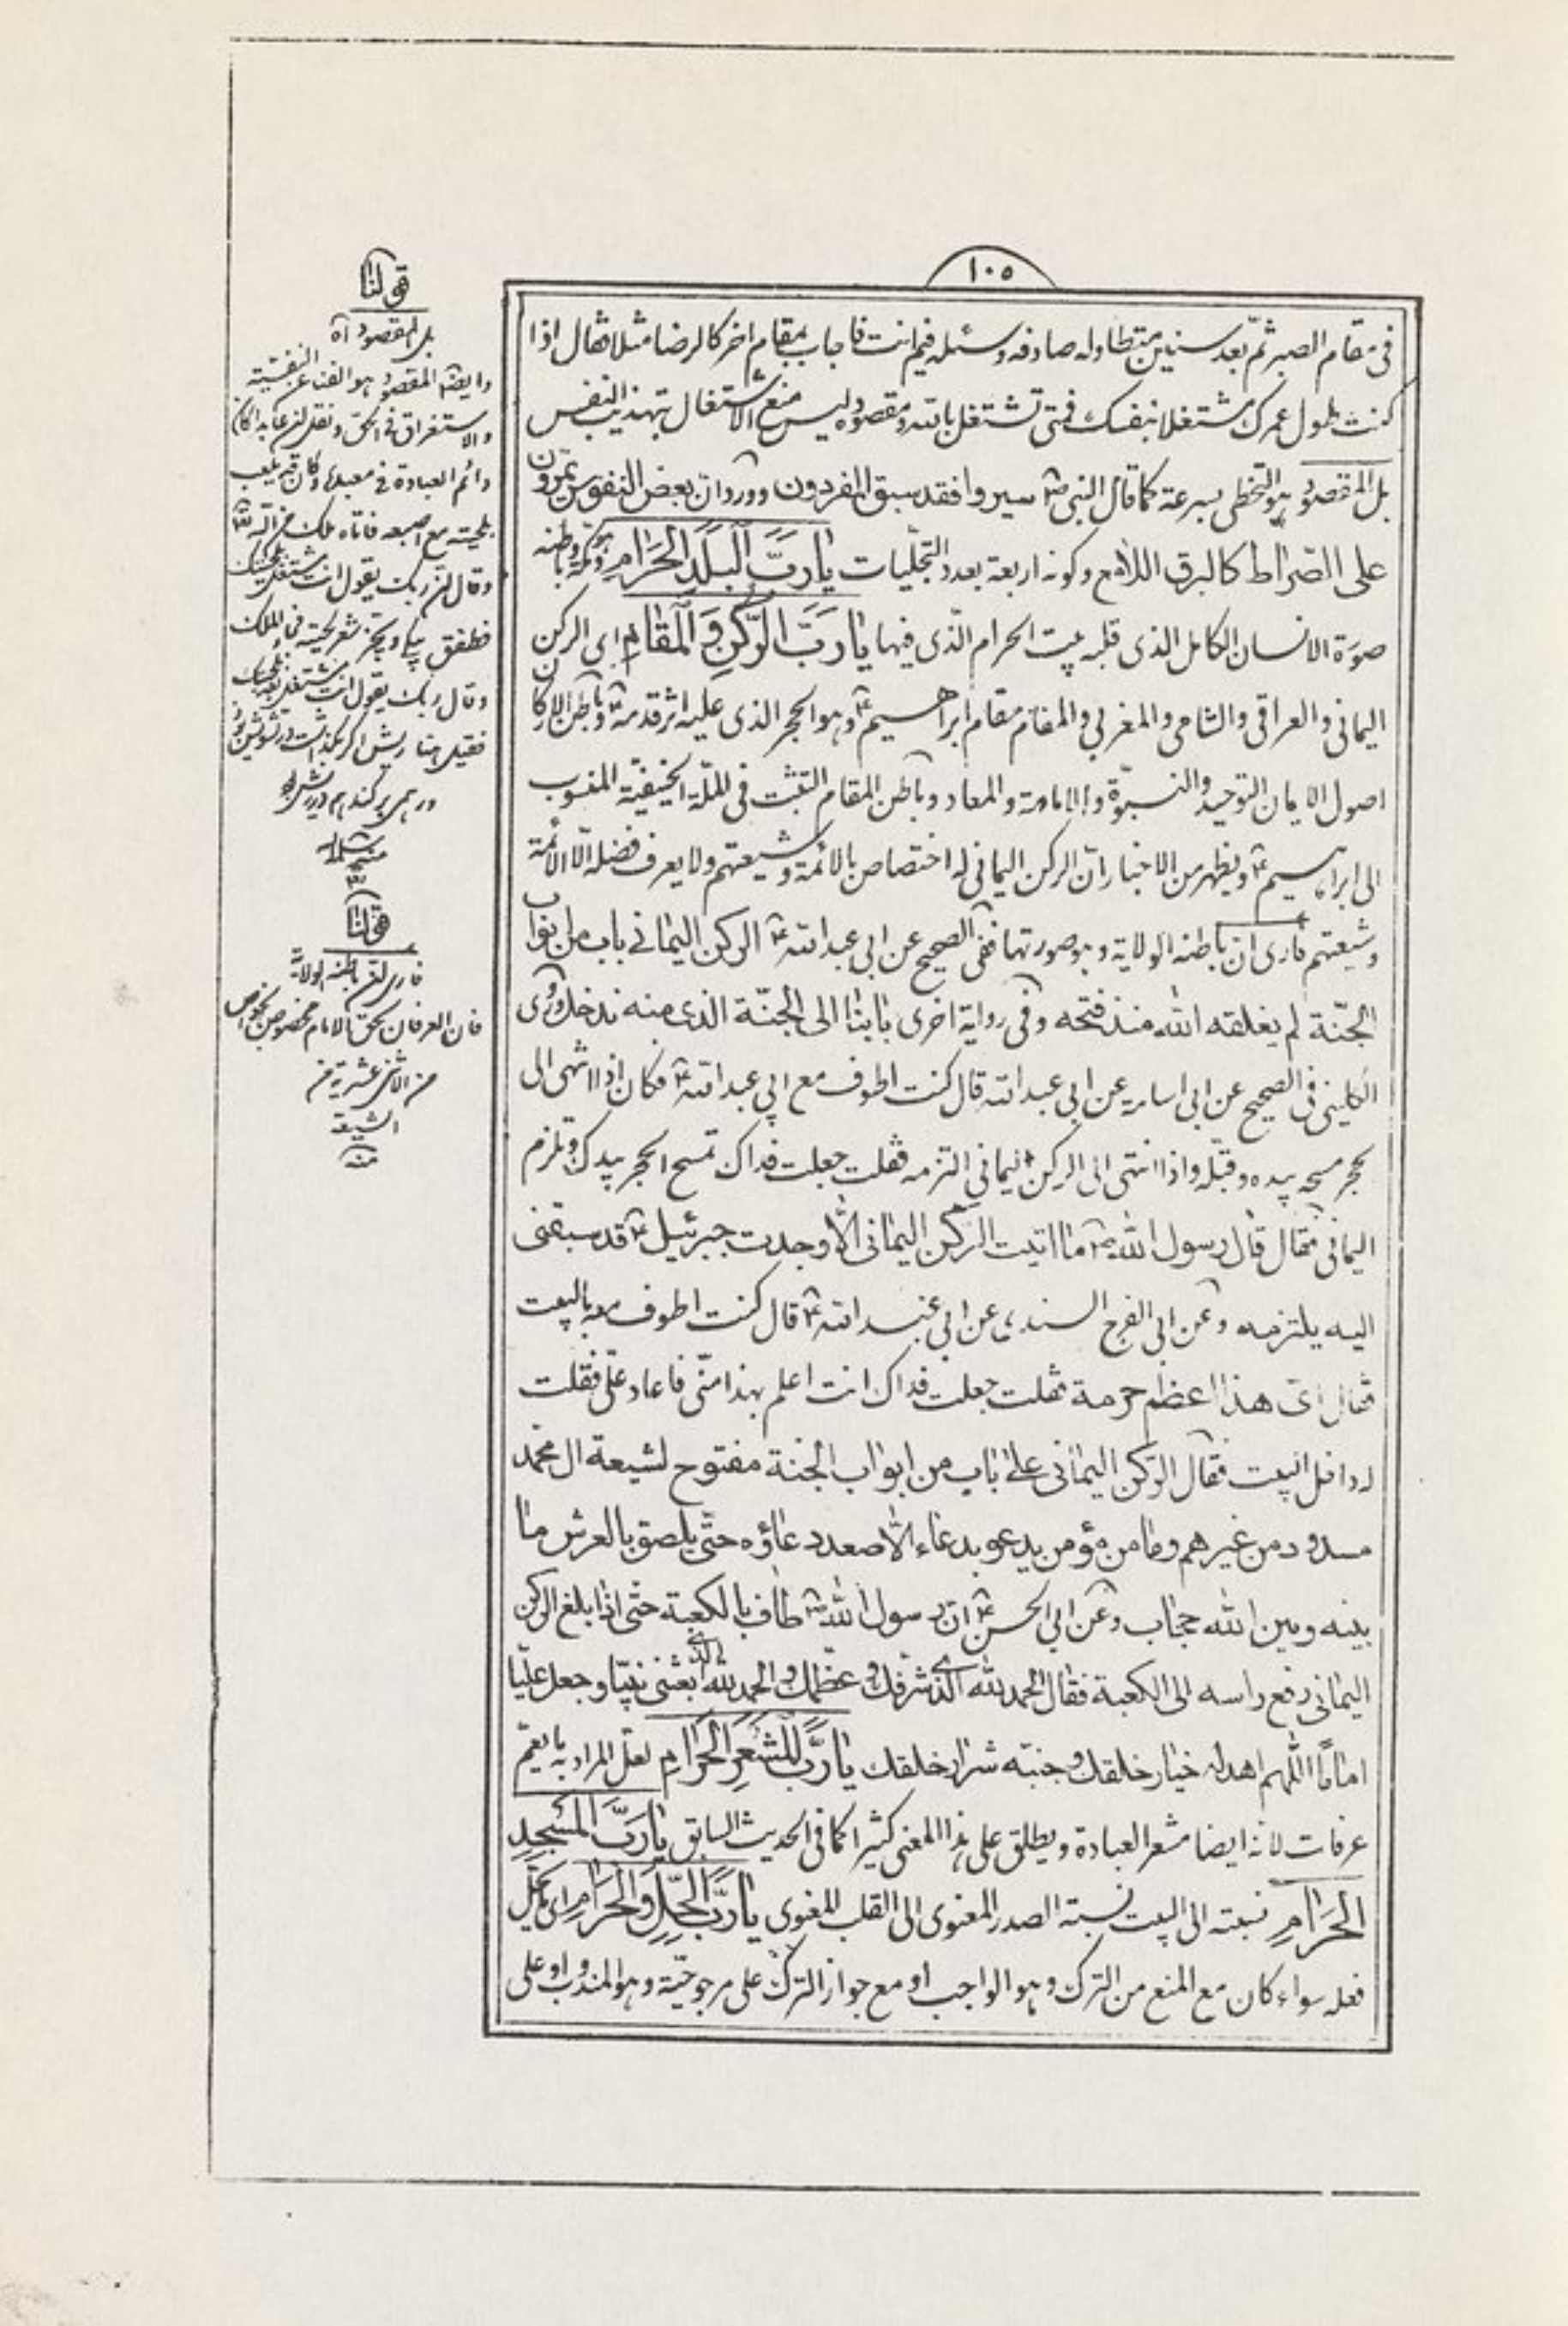 ١٠٥
فى مقام الصبر ثم بعد سنين متطاوله صادفه وسئله فيم انت فاجاب بمقام اخر كالرضا مثلا فقال اذا
كنت بطول عمرك مشتغلا بنفسك فمتى تشتغل بالله ومقصوده ليس منع الاشتغال بتهذيب النفس
بل المقصود هو التخطى بسرعة كما قال النبى ص سيروا فقد سبق المفردون وورد ان بعض النفوس يمرون
على الصراط كالبرق اللامع وكونه اربعة بعدد التجليات يا رَبَّ الْبَلَدِ الْحَرَامِ هو مكة وباطنه
صورة الانسان الكامل الذى قلبه بيت الحرام الذى فيها يا رَبَّ الرُّكْنِ وَالْمَقَامِ اى الركن
اليمانى والعراقى والشامى والمغربى والمقام مقام ابراهيم ع وهو الحجر الذى عليه اثر قدمه ع وباطن الاركان
اصول الايمان التوحيد والنبوة والامامة والمعاد وباطن المقام التثبت فى الملة الحنيفية المنسوب
الى ابراهيم ع ويظهر من الاخبار ان الركن اليمانى له اختصاص بالائمة وشيعتهم ولا يعرف فضله الا الائمة
وشيعتهم فارى ان باطنه الولاية وهو صورتها ففى الصحيح عن ابى عبد الله ع الركن اليمانى باب من ابواب
الجنة لم يغلقه الله منذ فتحه وفى رواية اخرى بابنا الى الجنة الذى منه ندخل وروى
الكلينى فى الصحيح عن ابى اسامه عن ابى عبد الله قال كنت اطوف مع ابى عبد الله ع فكان اذا انتهى الى
الحجر مسحه بيده وقبله واذا انتهى الى الركن اليمانى التزمه فقلت جعلت فداك تمسح الحجر بيدك وتلزم
اليمانى فقال قال رسول الله ص ما اتيت الركن اليمانى الا وجدت جبرئيل ع قد سبقنى
اليه يلتزمه وعن ابى الفرج السندى عن ابى عبد الله ع قال كنت اطوف معه بالبيت
فقال اى هذا اعظم حرمة فقلت جعلت فداك انت اعلم بهذا منى فاعاد على فقلت
له داخل البيت فقال الركن اليمانى على باب من ابواب الجنة مفتوح لشيعة ال محمد
مسدود من غيرهم وما من مؤمن يدعو بدعاء الا صعد دعاؤه حتى يلصق بالعرش ما
بينه وبين الله حجاب وعن ابى الحسن ع ان رسول الله ص طاف بالكعبة حتى اذا بلغ الركن
اليمانى رفع راسه الى الكعبة فقال الحمد لله الذى شرفك وعظمك والحمد لله الذى بعثنى نبيا وجعل عليا
اماما اللهم اهد له خيار خلقك وجنبه شرار خلقك يا رَبَّ الْمَشْعَرِ الْحَرَامِ لعل المراد به ما يعم
عرفات لانه ايضا مشعر العبادة ويطلق على هذا المعنى كثيرا كما فى الحديث السابق يا رَبَّ الْمَسْجِدِ
الْحَرَامِ نسبته الى البيت نسبة الصدر المعنوى الى القلب المعنوى يا رَبَّ الْحِلِّ وَالْحَرَامِ اى ما يحل
فعله سواء كان مع المنع من الترك وهو الواجب او مع جواز الترك على مرجوحيته وهو المندوب او على
قولنا
بل المقصود آه
وايضا المقصود هو الفناء عن النفسية
والاستغراق فى الحق ونقل ان عابدا كان
دائم العبادة فى معبده وكان قد يلعب
بلحيته مع اصبعه فاتاه ملك من الله تعالى
وقال ان ربك يقول انت مشتغل بلحيتك
فطفق يبكى ويجز شعر لحيته فجاء الملك
وقال ربك يقول انت مشتغل بعد بلحيتك
فقيل هنا ريش اگر بگذاشت در تشويش بود
ور همى بركند هم درويش بود
منه سلمه الله
قولنا
فارى ان باطنه الولاية
فان العرفان بحق الامام مخصوص بالخواص
من الاثنى عشرية من
الشيعة
منه